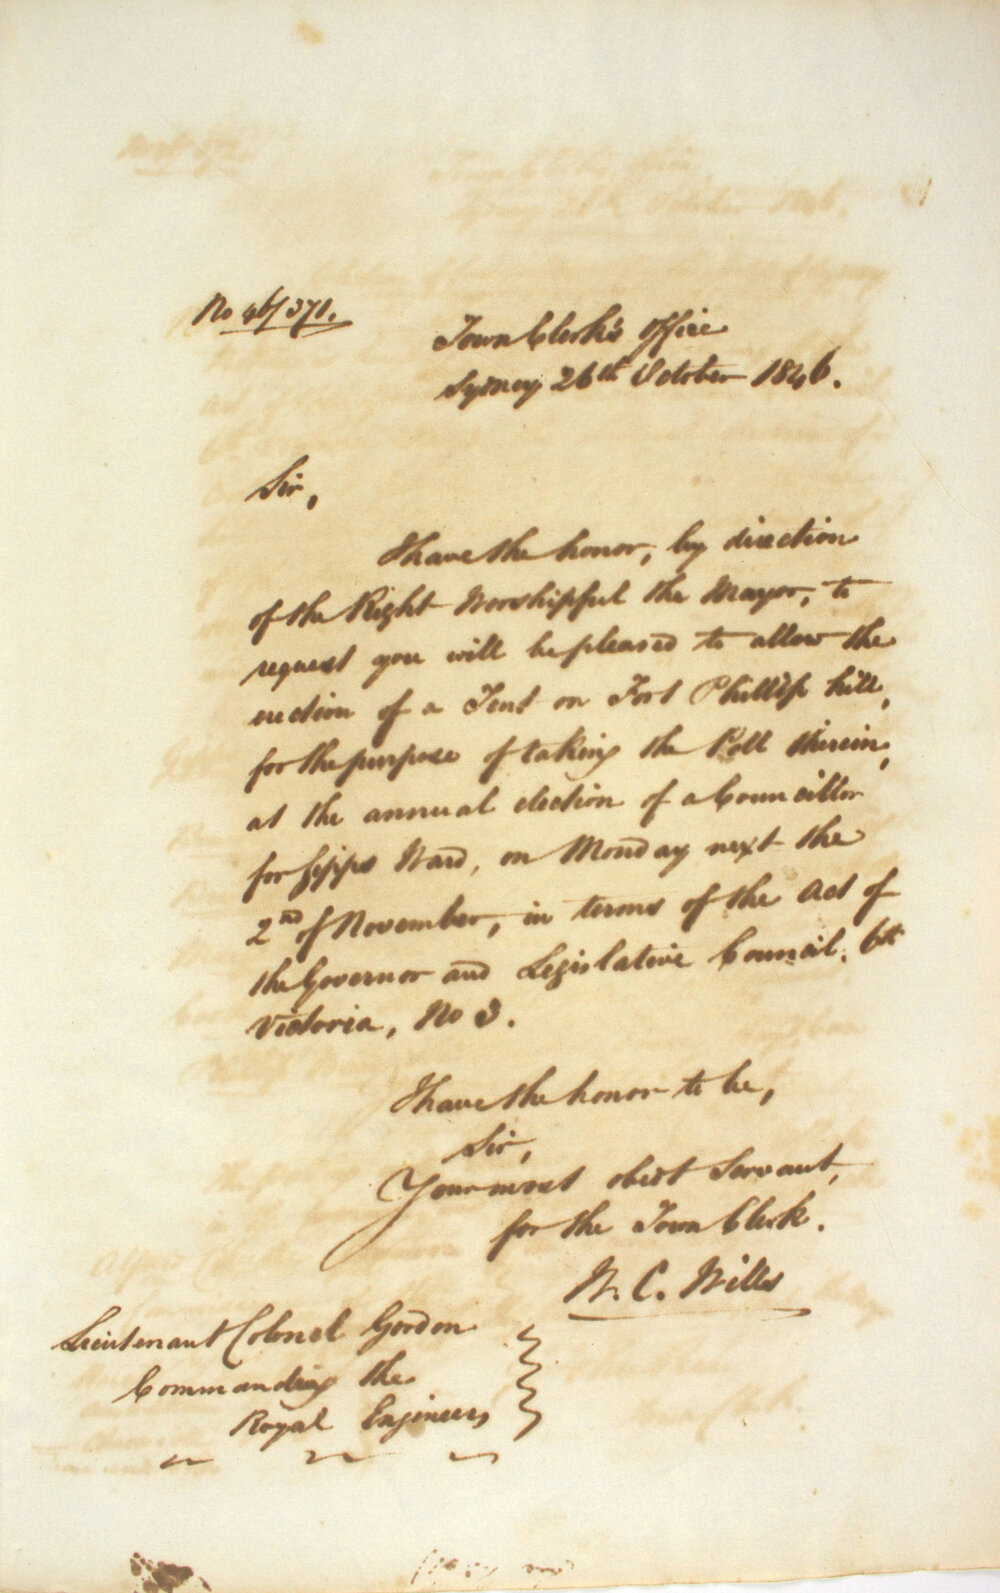 No 46/371.
Town Clerk's Office
Sydney 26th October 1846.
Sir,
I have the honor, by direction
of the Right Worshipful the Mayor, to
request you will be pleased to allow the
erection of a Tent on Fort Phillip hill,
for the purpose of taking the Poll therein,
at the annual election of a Councillor
for Gipps Ward, on Monday next the
2nd of November, in terms of the Act of
the Governor and Legislative Council, 6th
Victoria, No 3.
I have the honor to be,
Sir,
Your most obedt Servant,
for the Town Clerk.
W. C. Wills
Lieutenant Colonel Gordon
Commanding the
Royal Engineers